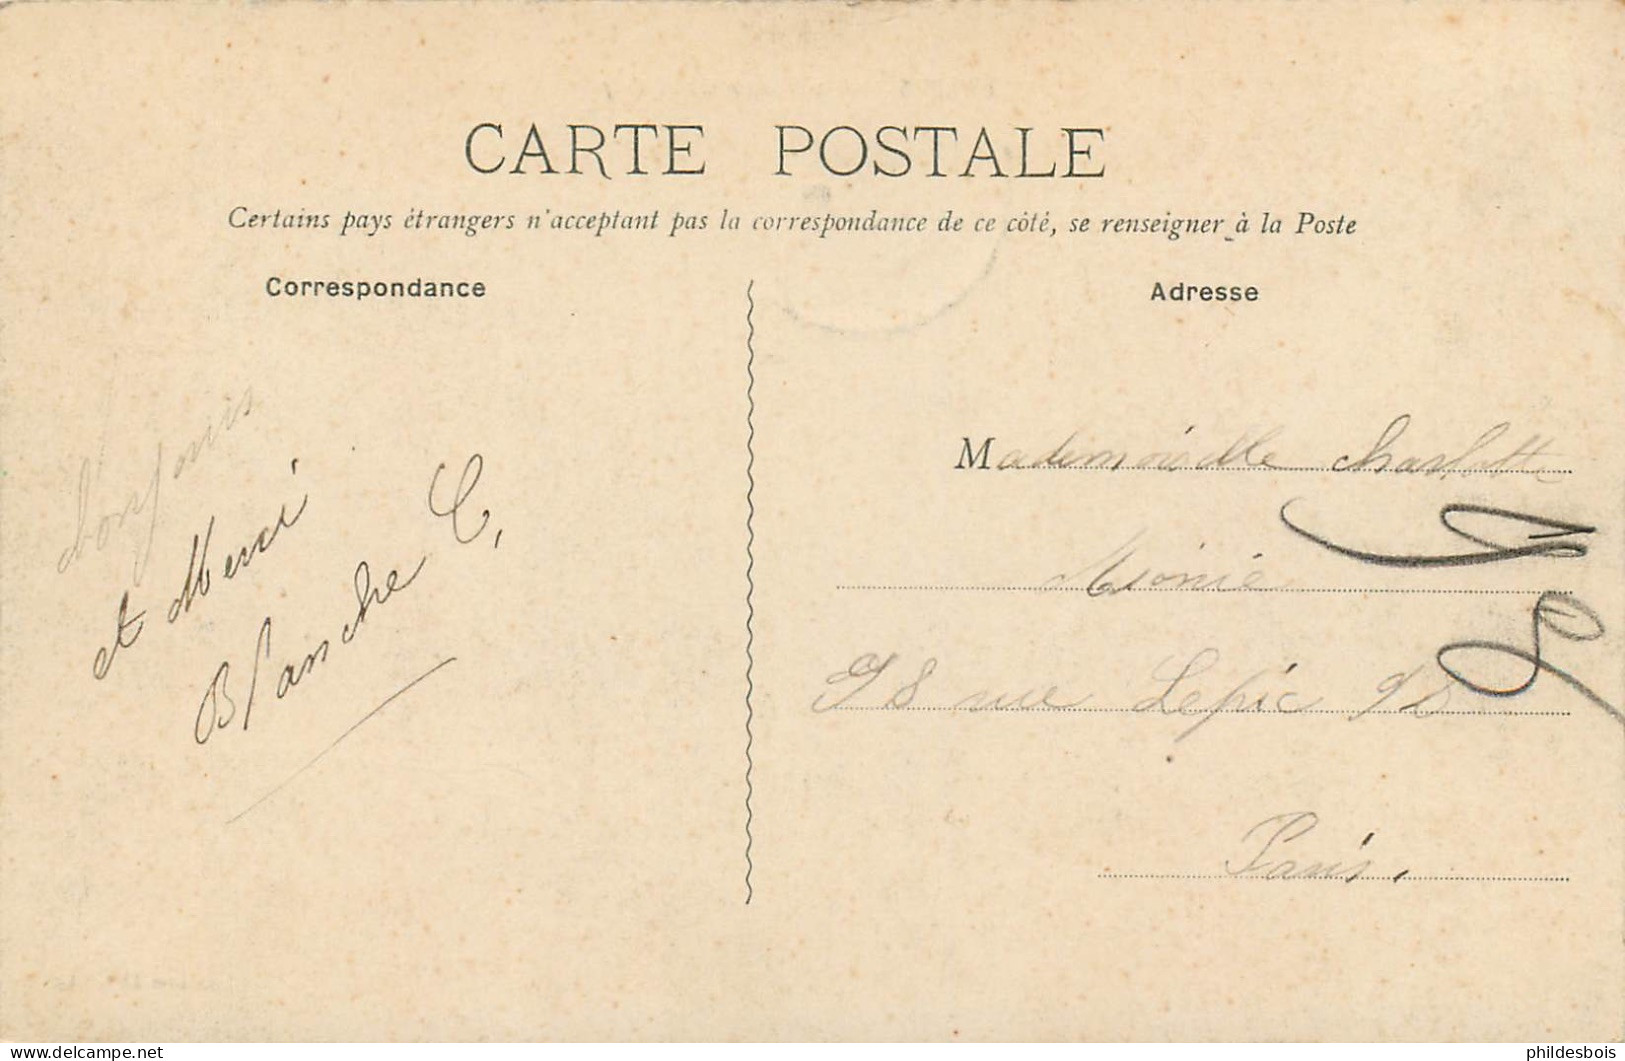 CARTE POSTALE
Certains pays étrangers n'acceptant pas la correspondance de ce côté, se renseigner à la Poste
Correspondance
Adresse
bonjours
et Merci
Blanche C,
Mademoiselle Charlotte
98 rue Lepic 98
Paris.
delcampe.net
phildesbois